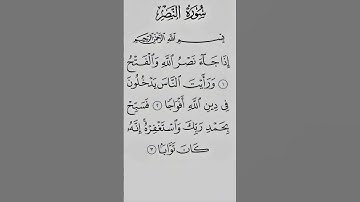 سُورَةُ النَّصْرِ
بِسْمِ اللَّهِ الرَّحْمَٰنِ الرَّحِيمِ
إِذَا جَآءَ نَصْرُ اللَّهِ وَالْفَتْحُ
١ وَرَأَيْتَ النَّاسَ يَدْخُلُونَ
فِى دِينِ اللَّهِ أَفْوَاجًا ٢ فَسَبِّحْ
بِحَمْدِ رَبِّكَ وَاسْتَغْفِرْهُ إِنَّهُۥ
كَانَ تَوَّابًۢا ٣